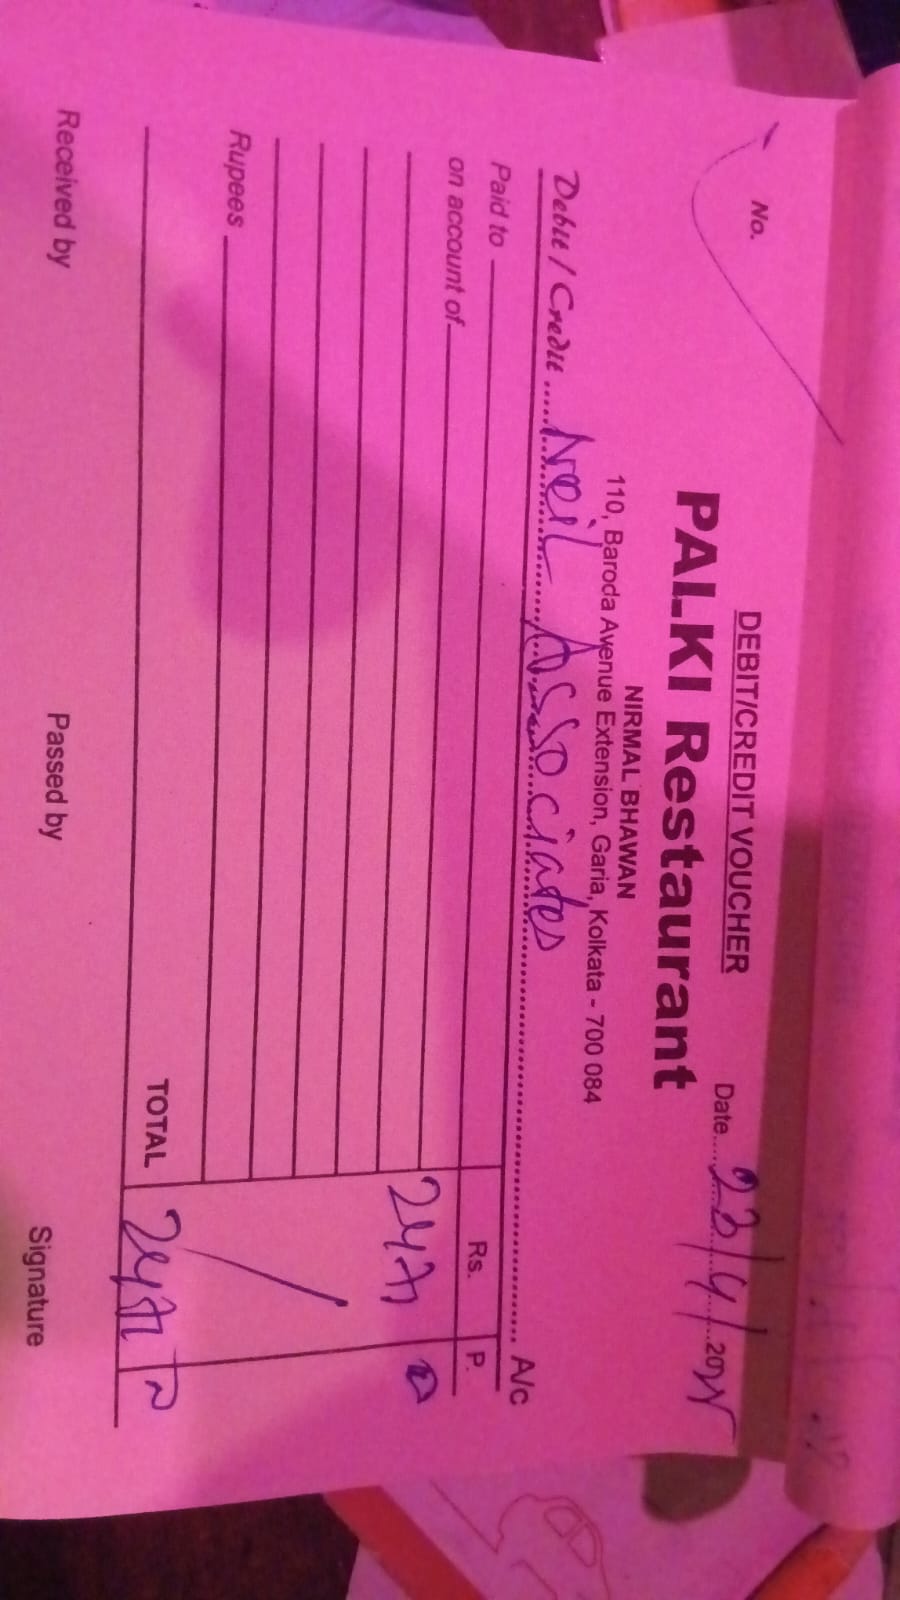 DEBIT/CREDIT VOUCHER
No.
Date
PALKI Restaurant
NIRMAL BHAWAN
110, Baroda Avenue Extension, Garia, Kolkata - 700 084
Debit / Credit Neil Associates A/c
Paid to Rs. P.
on account of
Rupees
TOTAL
Received by Passed by Signature